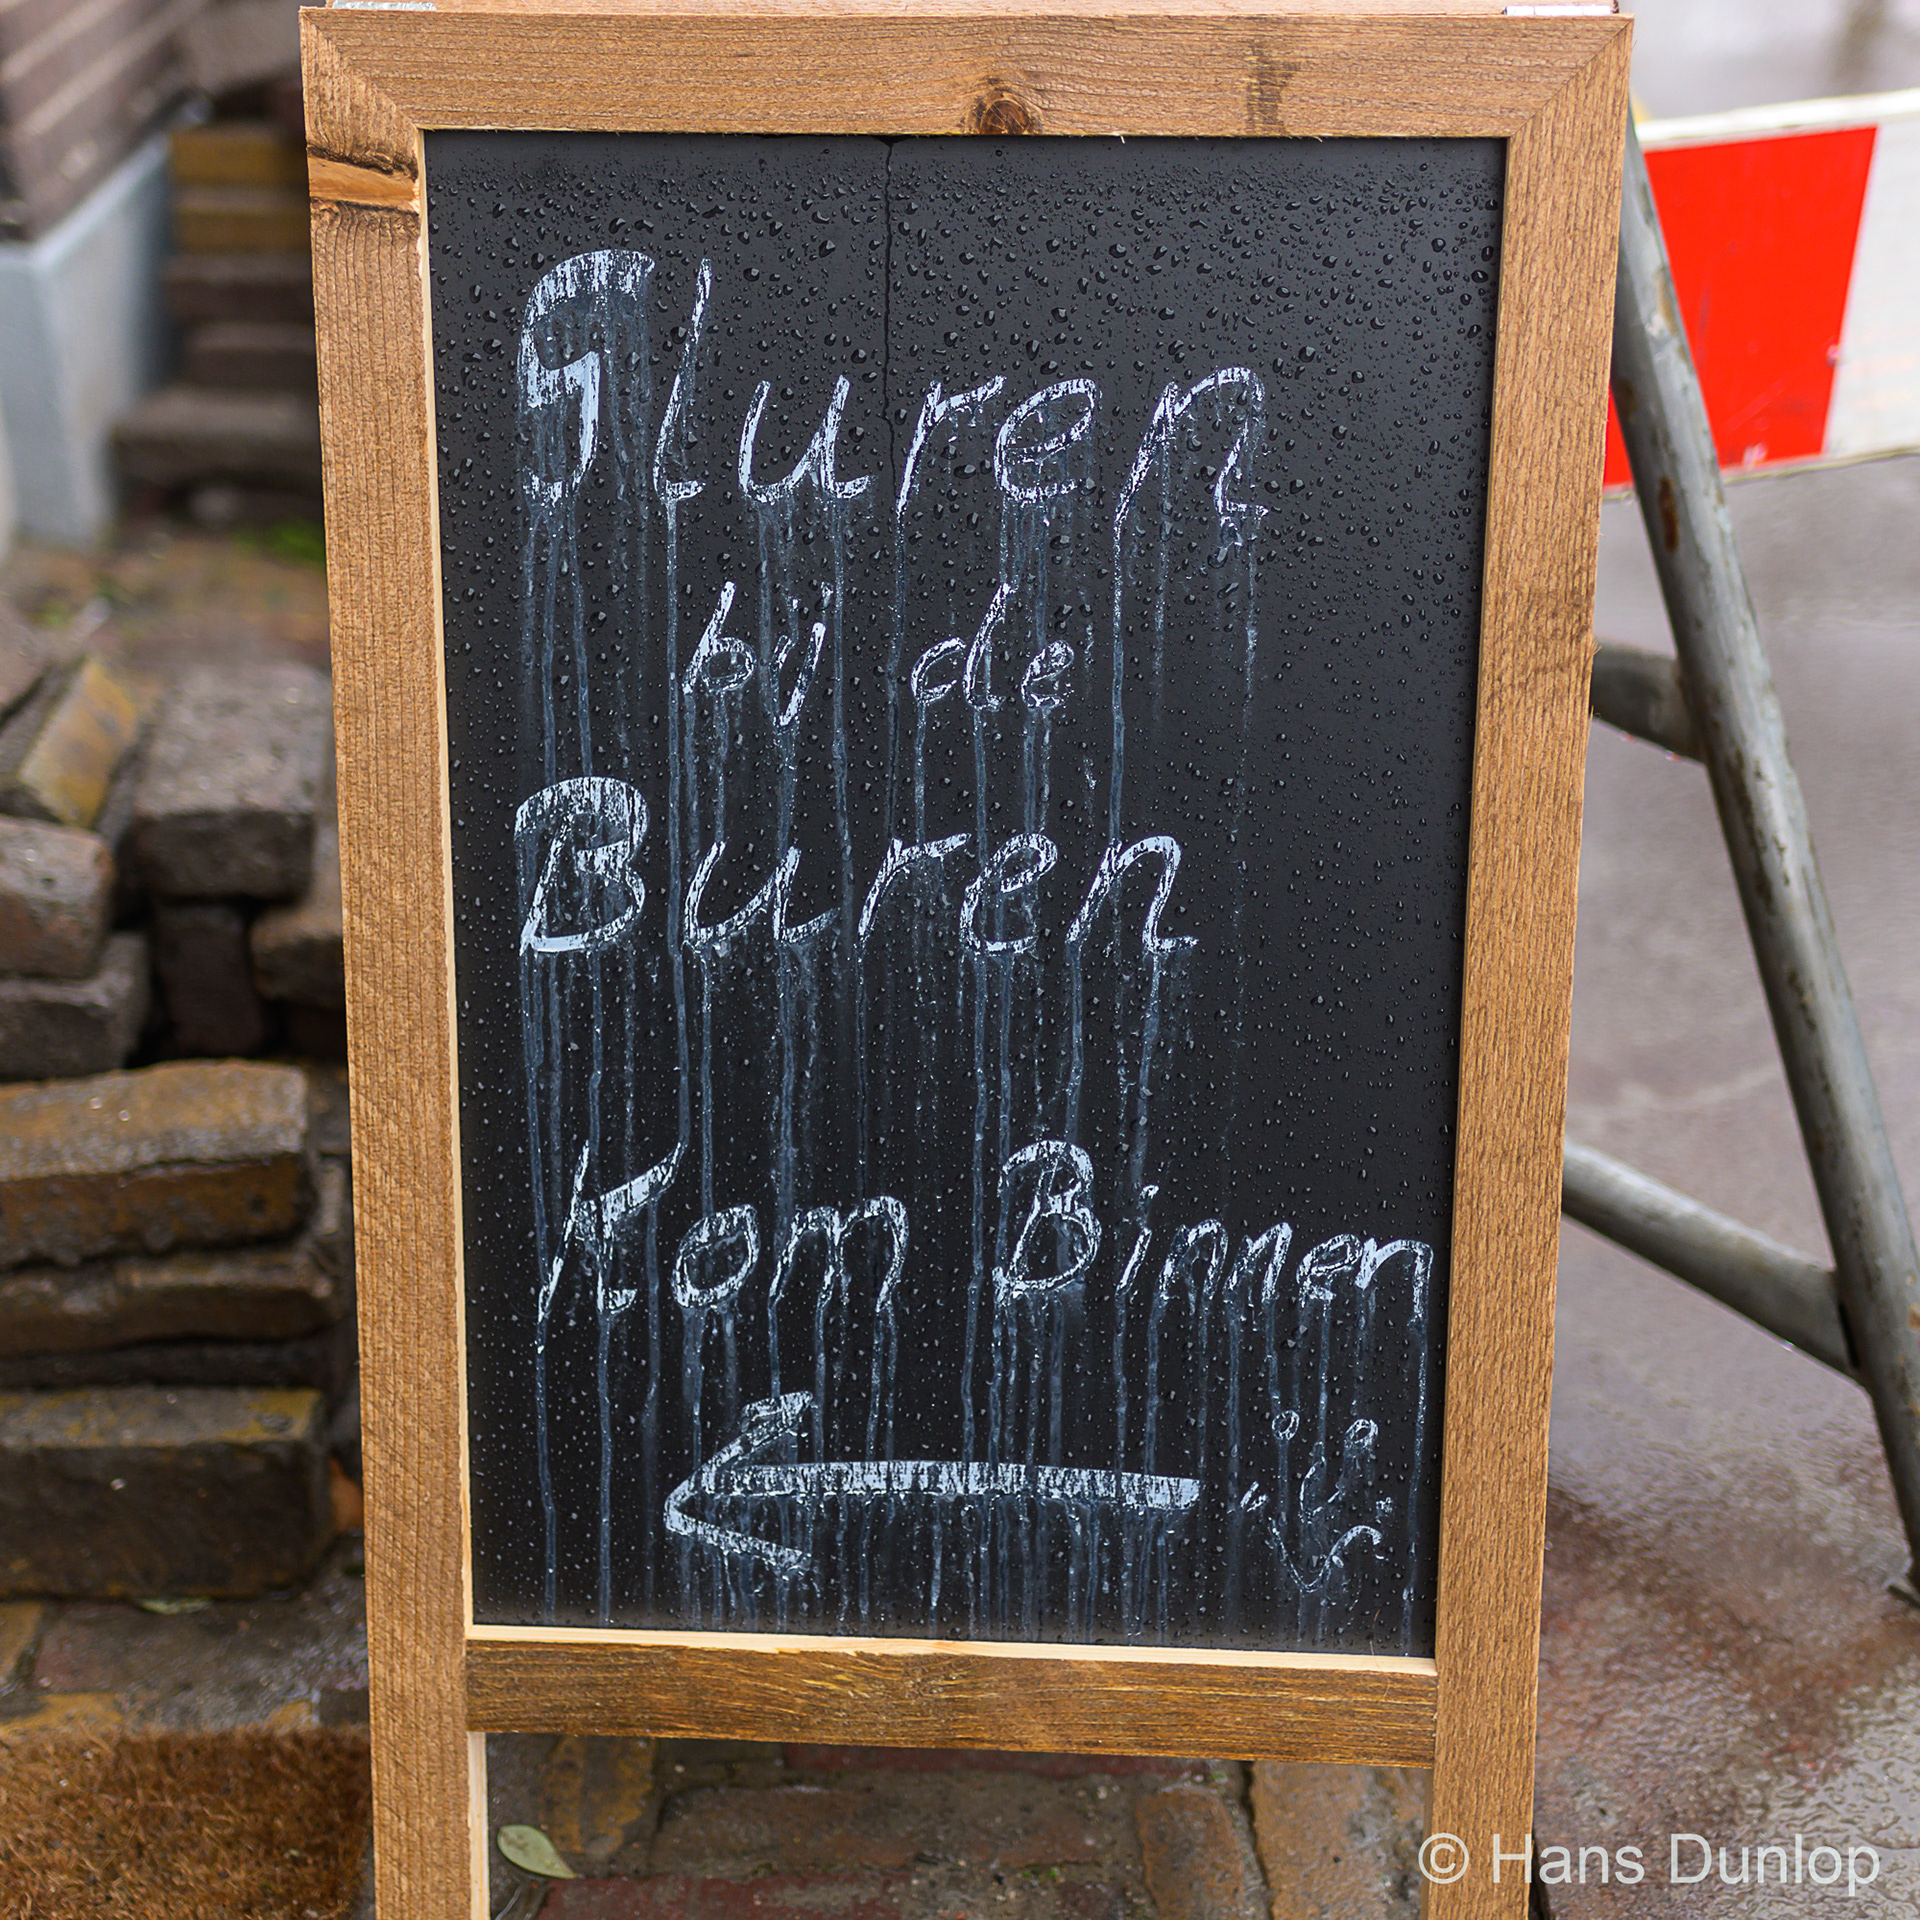 Gluren
bij de
Buren
Kom Binnen
© Hans Dunlop